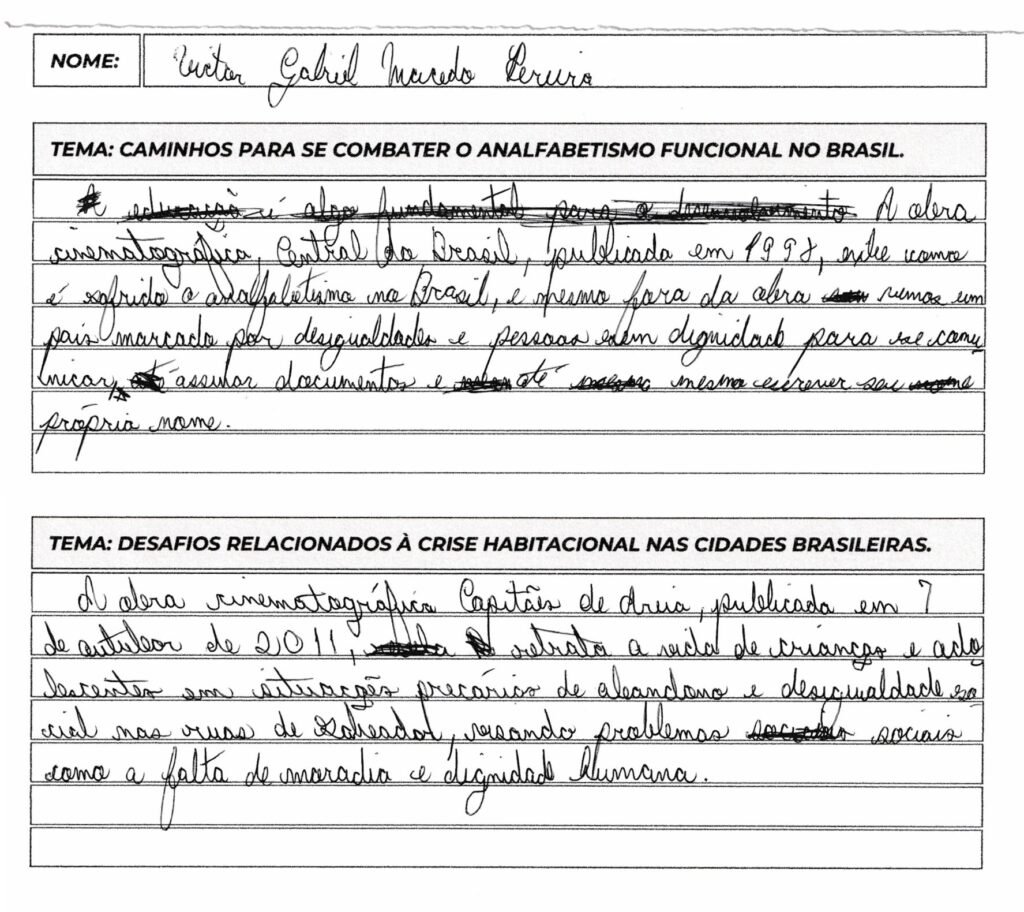 NOME: Victor Gabriel Macedo Pereira
TEMA: CAMINHOS PARA SE COMBATER O ANALFABETISMO FUNCIONAL NO BRASIL.
A educação é algo fundamental para o desenvolvimento A obra
cinematográfica, Central do Brasil, publicada em 1998, exibe como
é sofrido o analfabetismo no Brasil, e mesmo fora da obra vemos um
país marcado por desigualdades e pessoas sem dignidade para se comu
nicar, assinar documentos e até mesmo escrever seu
próprio nome.
TEMA: DESAFIOS RELACIONADOS À CRISE HABITACIONAL NAS CIDADES BRASILEIRAS.
A obra cinematográfica Capitães de Areia, publicada em 7
de outubor de 2011, retrata a vida de crianças e ado
lescentes em situacções precárias de abandono e desigualdade so
cial nas ruas de Salvador, visando problemas sociais
como a falta de moradia e dignidade humana.